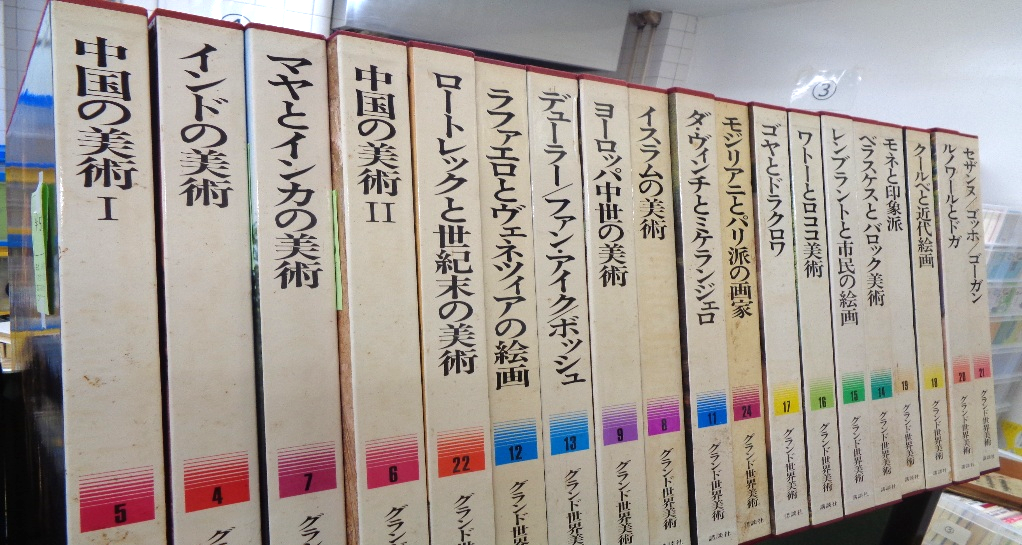 中国の美術 I
5
インドの美術
4
グ
マヤとインカの美術
7
グラン
中国の美術 II
6
グラン
ロートレックと世紀末の美術
22
グランド
ラファエロとヴェネツィアの絵画
12
グランド世界
デューラー/ファン・アイク・ボッシュ
13
グランド世界美
ヨーロッパ中世の美術
9
グランド世界美術
イスラムの美術
8
グランド世界美術
ダ・ヴィンチとミケランジェロ
11
グランド世界美術
講談社
モジリアニとパリ派の画家
24
グランド世界美術
講談社
ゴヤとドラクロワ
17
グランド世界美術
講談社
ワトーとロココ美術
16
グランド世界美術
講談社
レンブラントと市民の絵画
15
グランド世界美術
講談社
ベラスケスとバロック美術
14
グランド世界美術
講談社
モネと印象派
19
グランド世界美術
講談社
クールベと近代絵画
18
グランド世界美術
講談社
ルノワールとドガ
20
グランド世界美術
講談社
セザンヌ/ゴッホ/ゴーガン
21
グランド世界美術
講談社
③
③